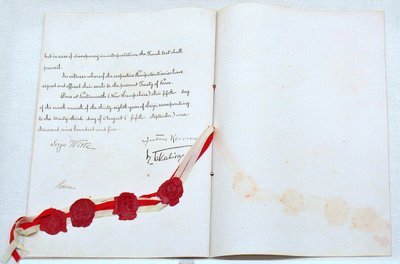 but in case of discrepancy in interpretation, the French text shall
prevail.
In witness whereof the respective Plenipotentiaries have
signed and affixed their seals to the present Treaty of Peace.
Done at Portsmouth (New Hampshire) this fifth day
of the ninth month of the thirty eighth year of Meiji, corresponding
to the twenty third day of August (fifth September) one
thousand nine hundred and five.
Jutaro
Serge Witte
Takahira
Rosen